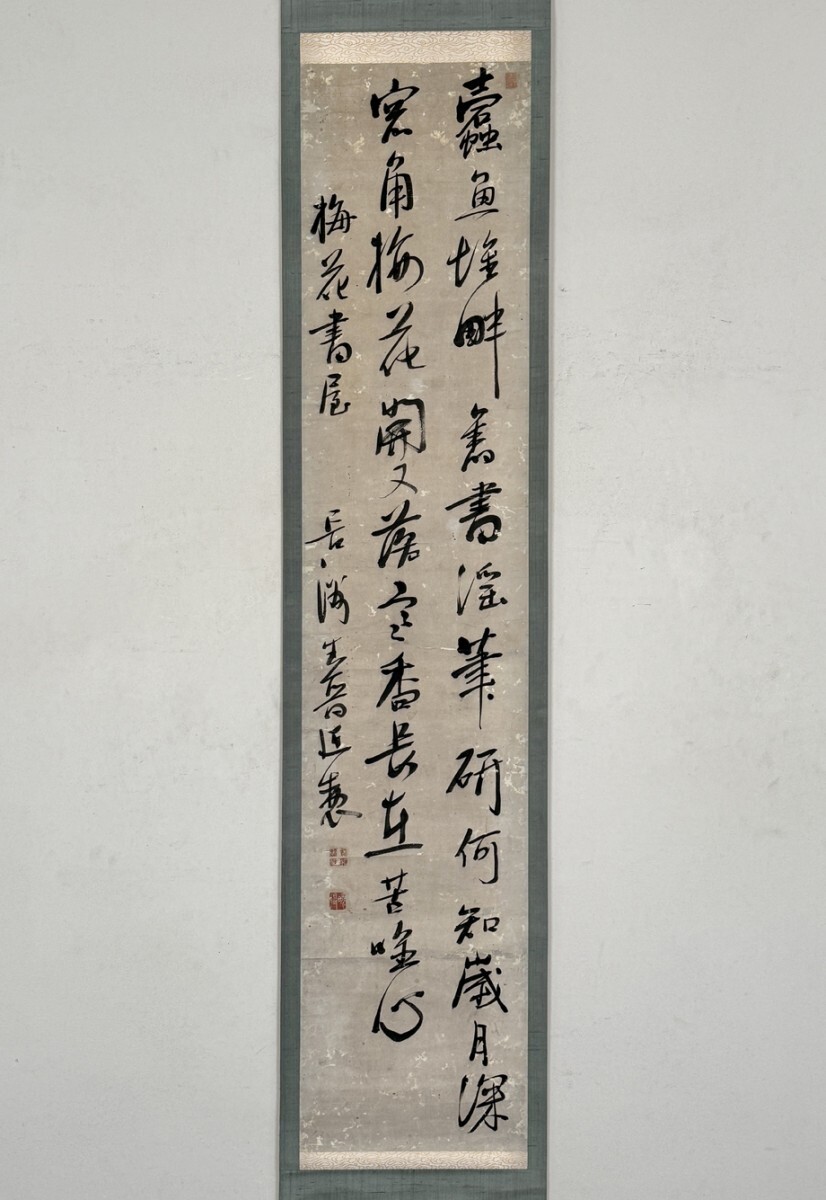 蠹魚堆畔舊書滛筆研何知歲月深
窓角梅花開又落寒香長在苦唫心
梅花書屋 長